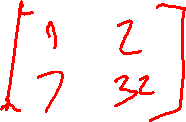 [1 2
7 32]